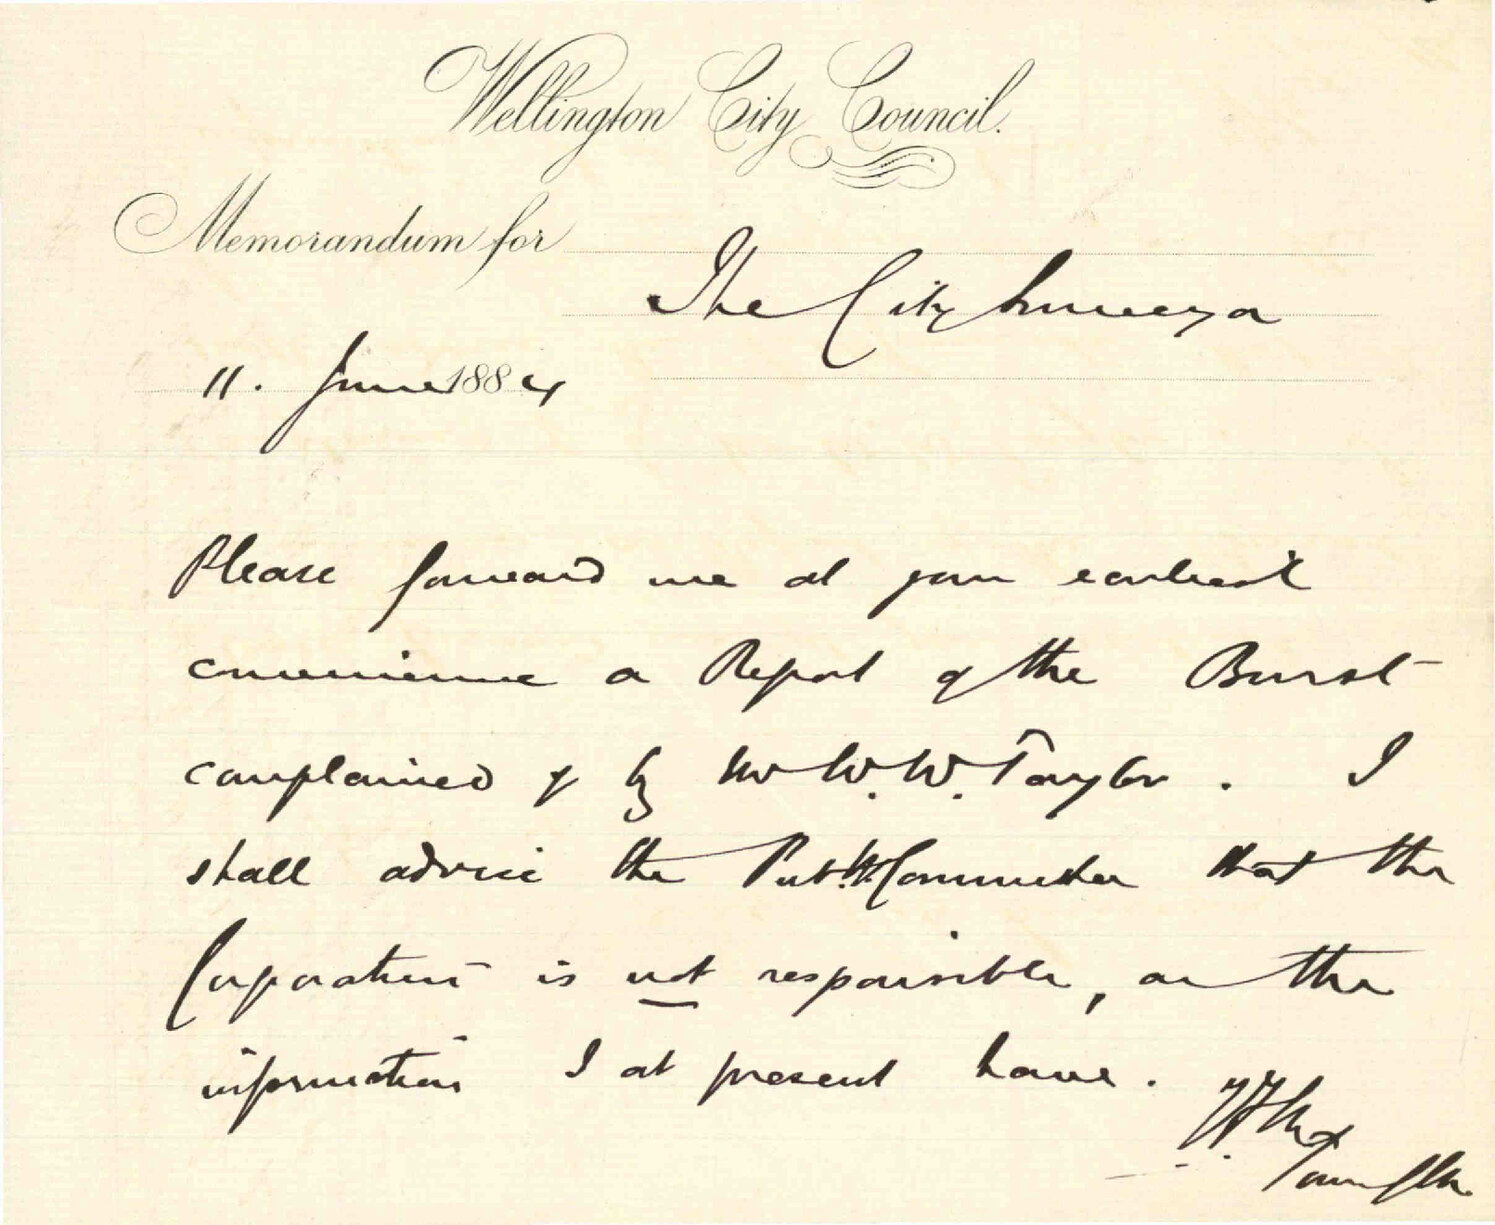 Wellington City Council.
Memorandum for
The City Surveyor
11. June 1884
Please forward me at your earliest
convenience a Report of the Burst
complained of by Mr W. W. Taylor. I
shall advise the Pub. W. Committee that the
Corporation is not responsible, on the
information I at present have.
Town Clk.